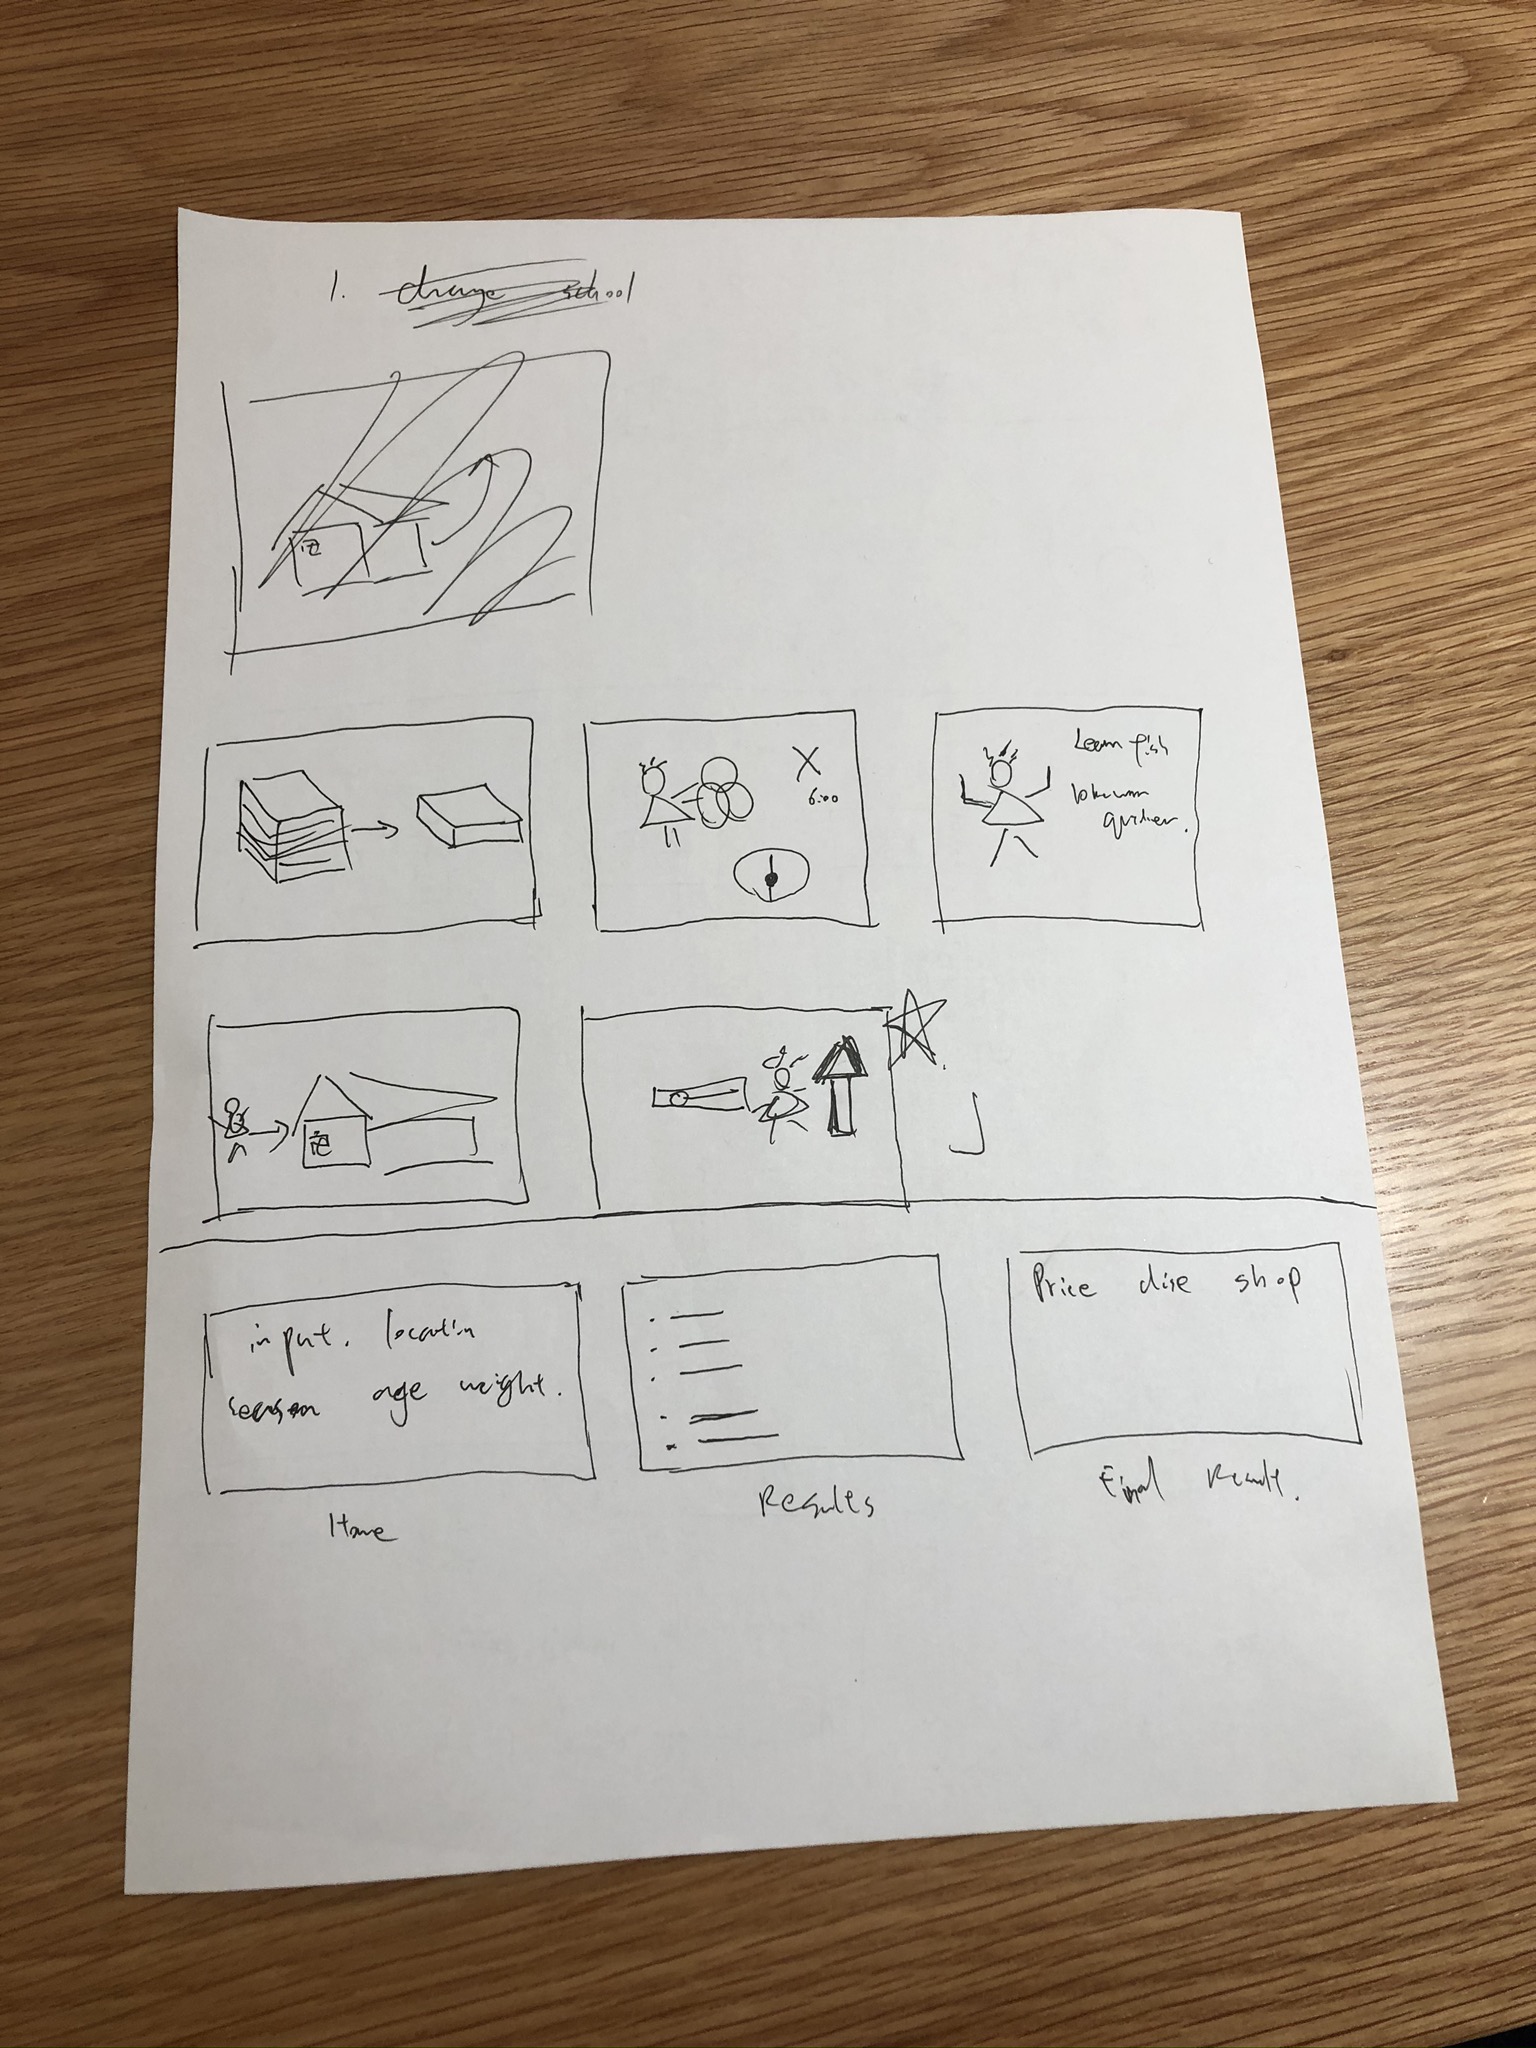 1. change school
X
6:00
Learn fish
quicker.
input. location
season age weight.
Home
Results
Price dise shop
Final Result.